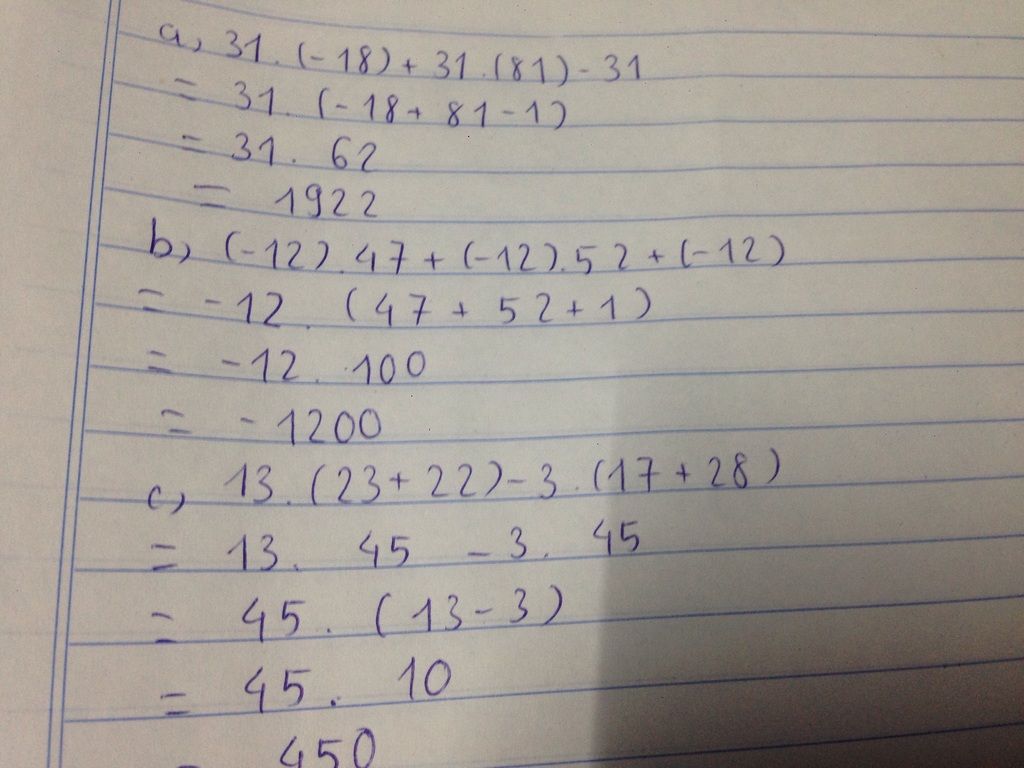 a, 31.(-18)+31.(81)-31
= 31.(-18+81-1)
= 31. 62
= 1922
b, (-12).47+(-12).52+(-12)
= -12.(47+52+1)
= -12. 100
= -1200
c, 13.(23+22)-3.(17+28)
= 13. 45 -3. 45
= 45.(13-3)
= 45. 10
= 450